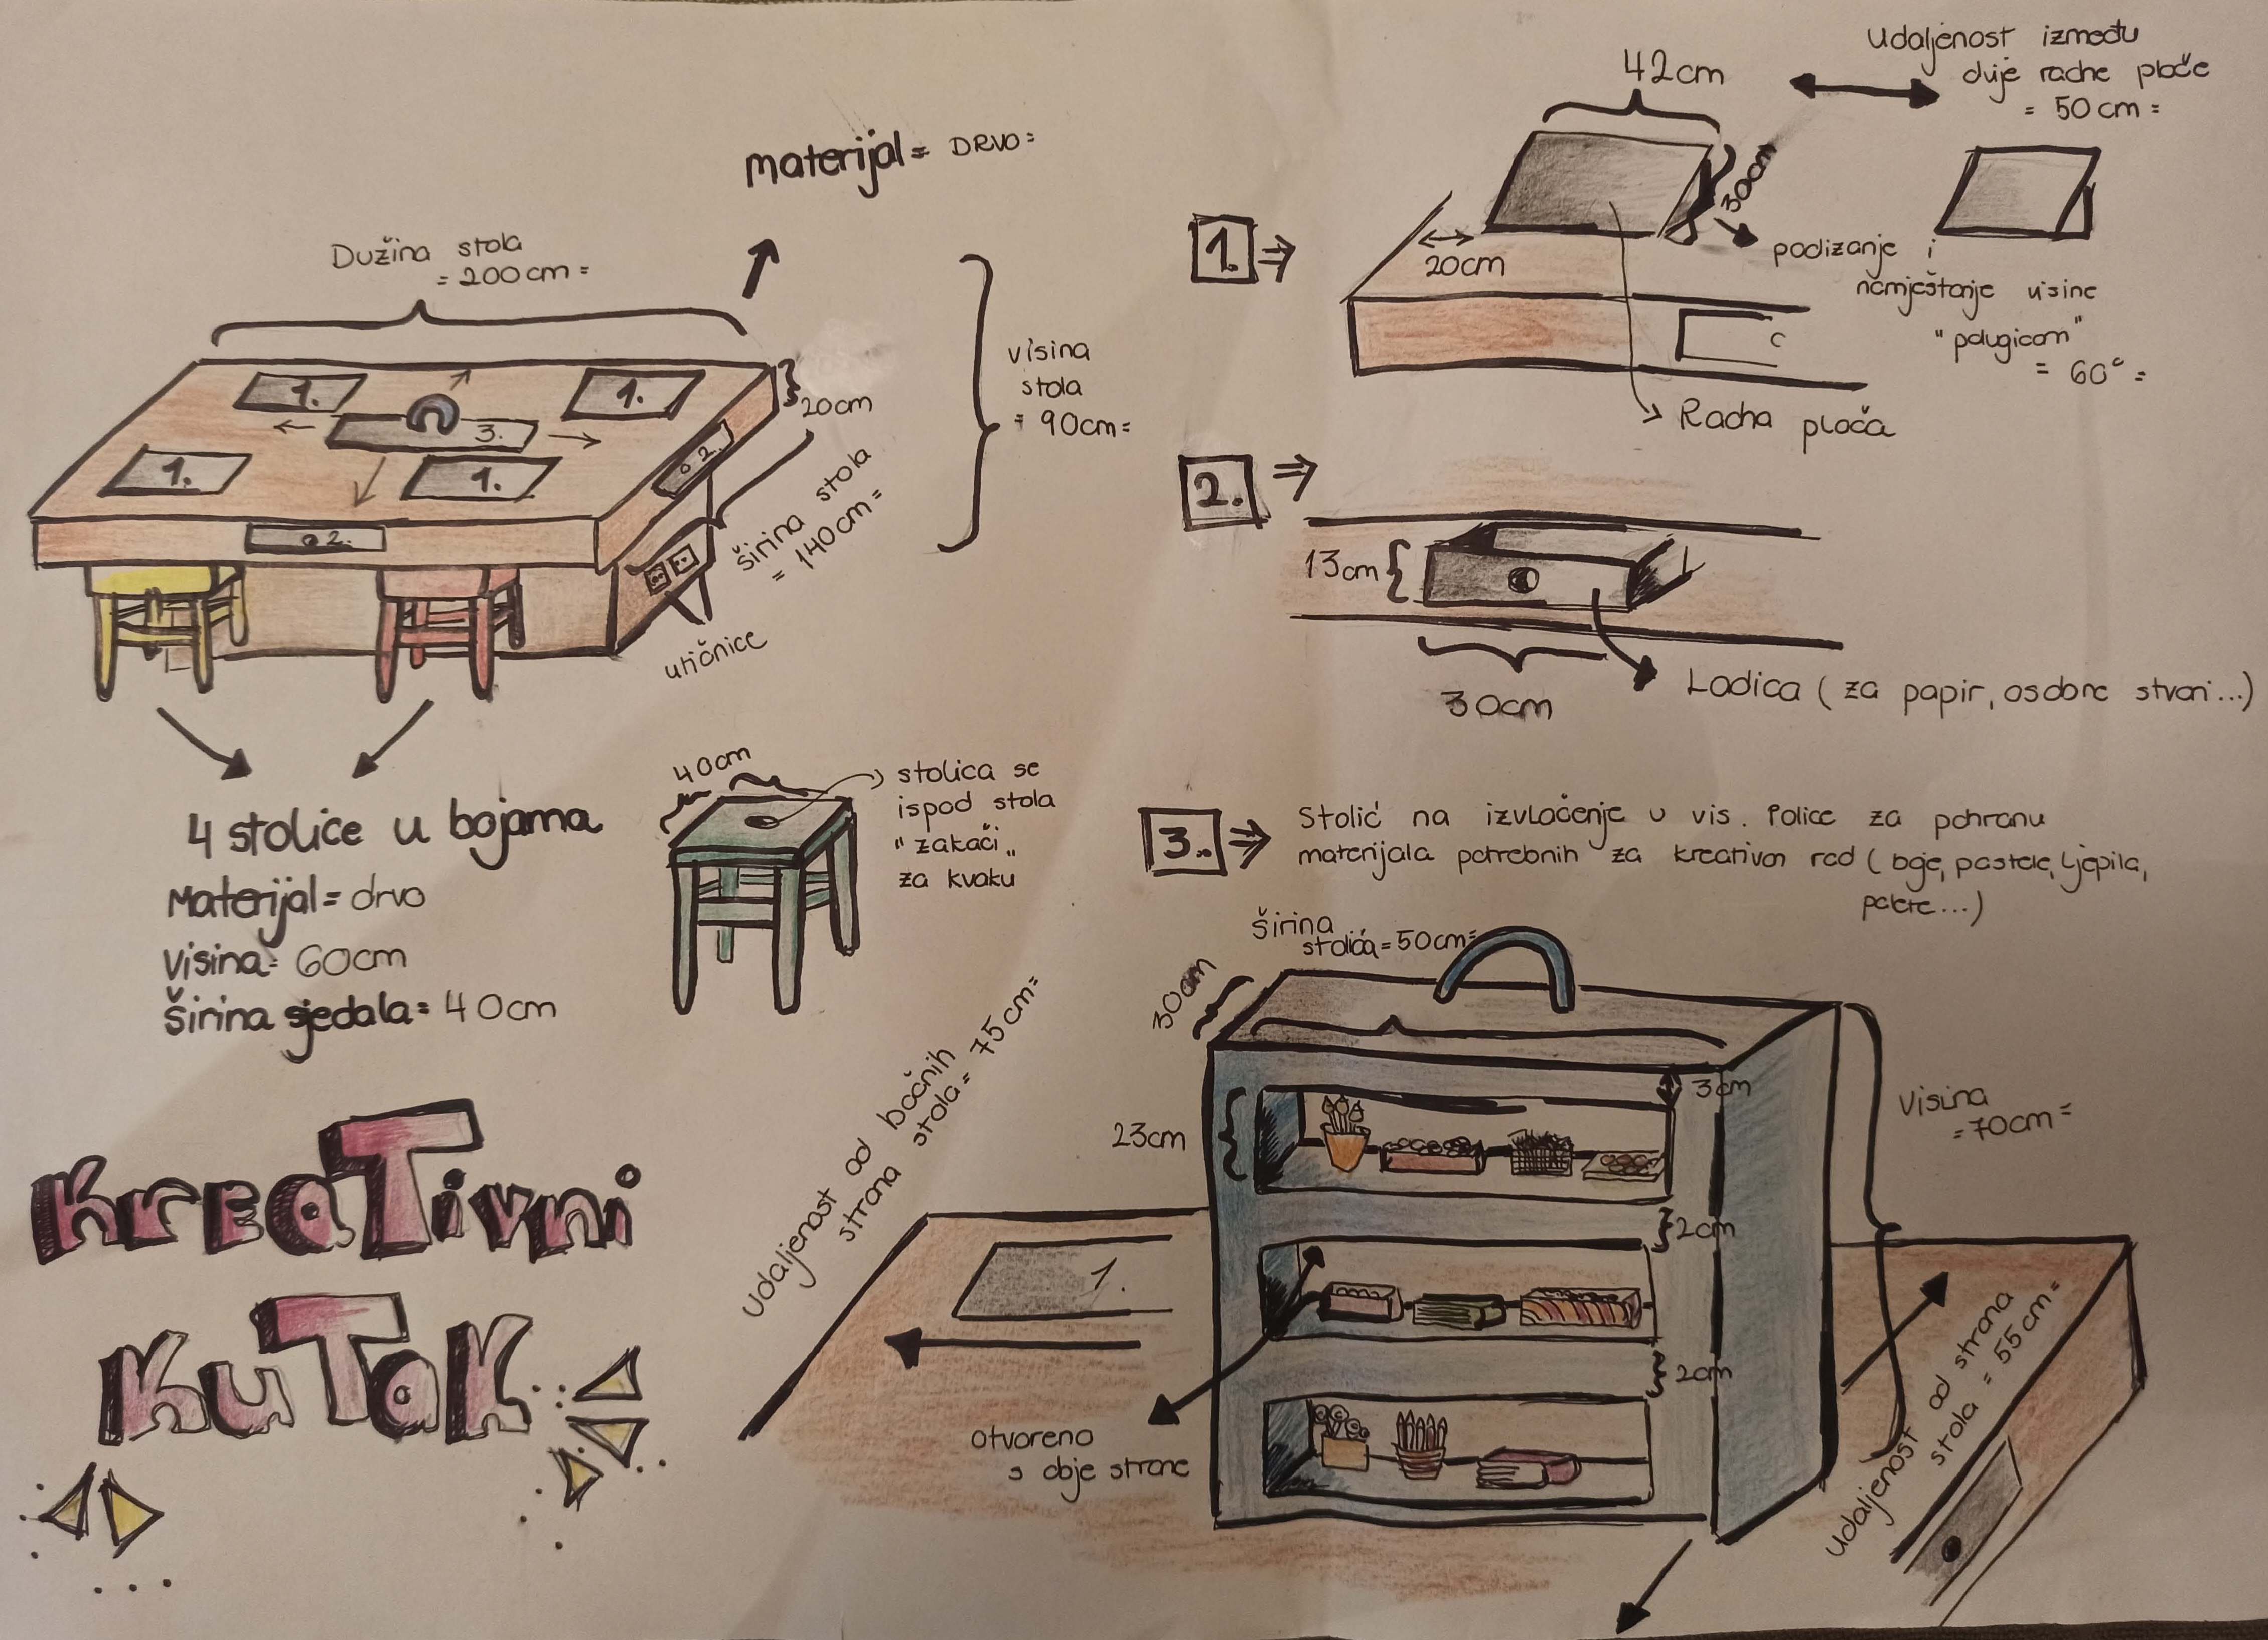 materijal= DRVO=
Dužina stola
= 200cm =
20cm
visina
stola
= 90cm=
širina stola
= 140cm =
1.
1.
3.
1.
1.
2.
2.
utičnice
4 stolice u bojama
Materijal= drvo
Visina= 60cm
Širina sjedala= 40cm
40cm
stolica se
ispod stola
"zakači„
za kvaku
KreaTivni
KuTaK
1.
42cm
30cm
20cm
Udaljenost između
dvije radne ploče
= 50cm =
podizanje i
namještanje visine
"polugicom"
= 60° =
Radna ploča
2.
13cm
30cm
Ladica (za papir, osobne stvari...)
3.
Stolić na izvlačenje u vis. Police za pohranu
materijala potrebnih za kreativan rad (boje, pastele, ljepila,
palete...)
širina
stolića=50cm=
30cm
3cm
23cm
2cm
2cm
Visina
=70cm=
Udaljenost od bočnih
strana stola= 75cm=
1.
otvoreno
s obje strane
Udaljenost od strana
stola = 55cm=